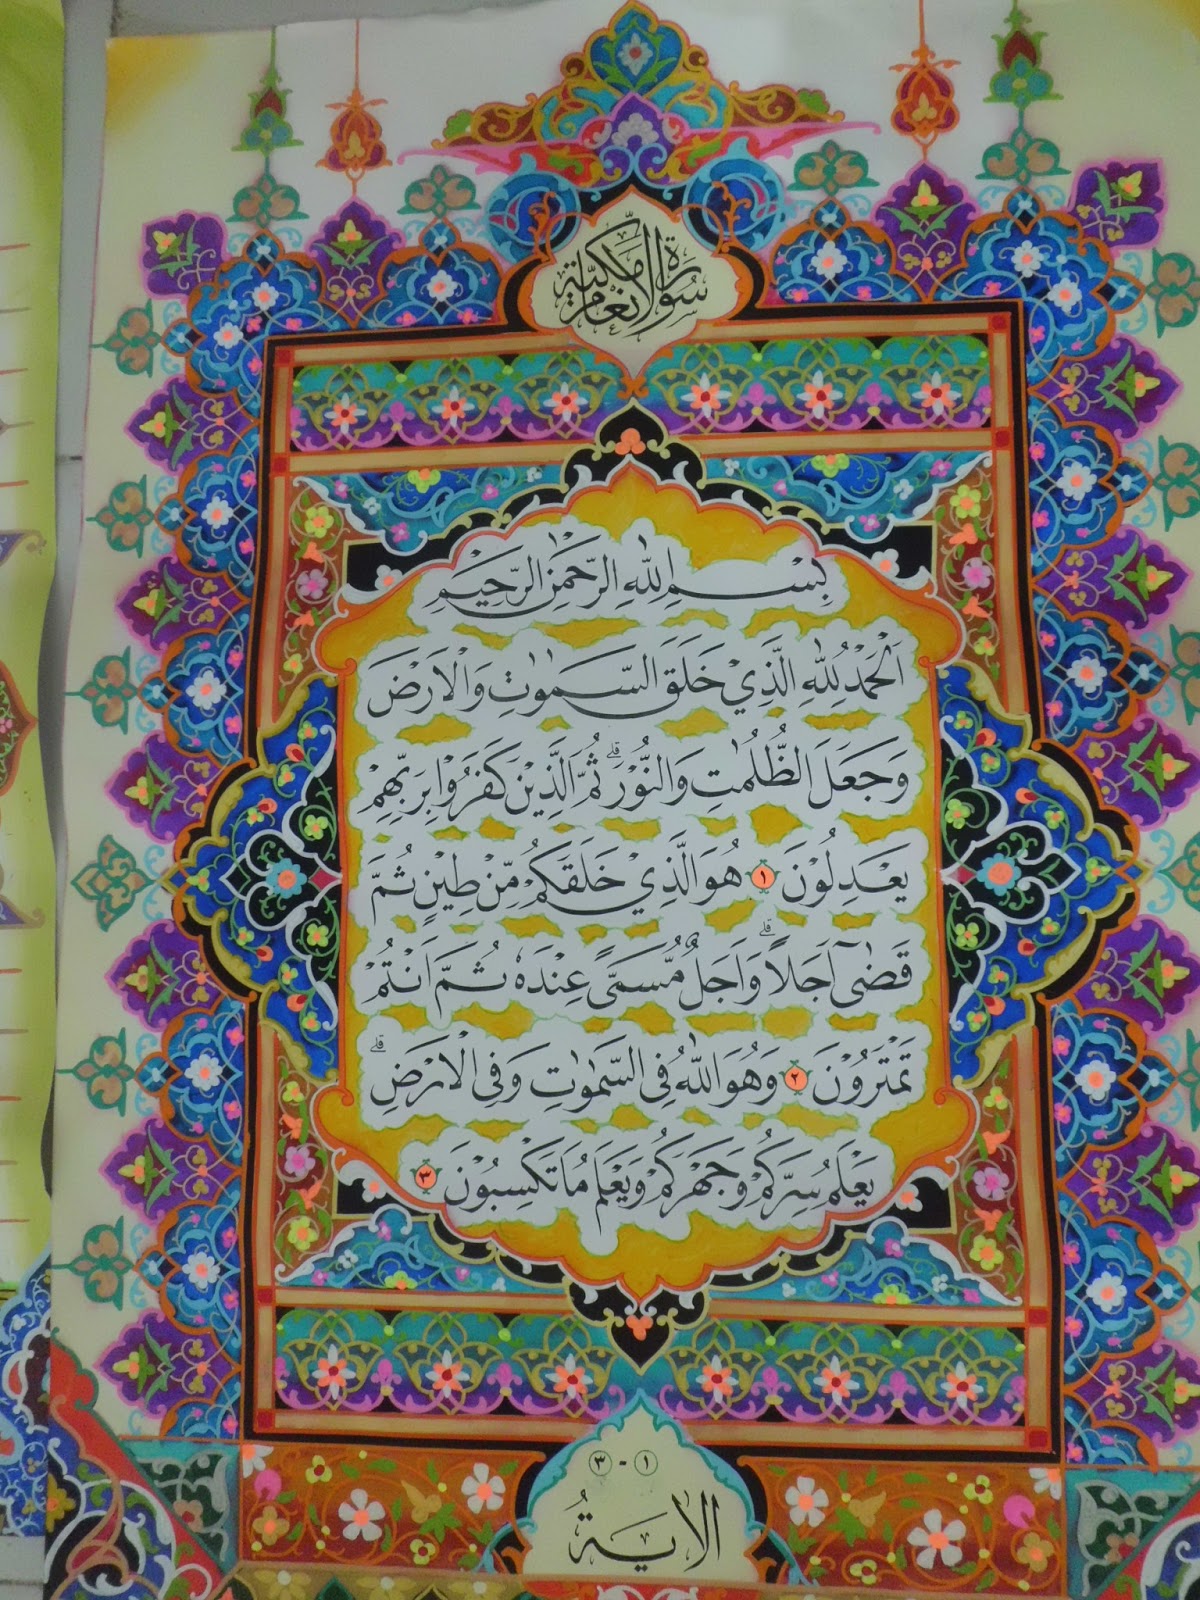 سُوْرَةُ الْاَنْعَامِ مَكِّيَّةٌ
بِسْمِ اللّٰهِ الرَّحْمٰنِ الرَّحِيْمِ
اَلْحَمْدُ لِلّٰهِ الَّذِيْ خَلَقَ السَّمٰوٰتِ وَالْاَرْضَ
وَجَعَلَ الظُّلُمٰتِ وَالنُّوْرَ ۗ ثُمَّ الَّذِيْنَ كَفَرُوْا بِرَبِّهِمْ
يَعْدِلُوْنَ ١ هُوَ الَّذِيْ خَلَقَكُمْ مِّنْ طِيْنٍ ثُمَّ
قَضٰٓى اَجَلًا ۗ وَاَجَلٌ مُّسَمًّى عِنْدَهٗ ثُمَّ اَنْتُمْ
تَمْتَرُوْنَ ٢ وَهُوَ اللّٰهُ فِى السَّمٰوٰتِ وَفِى الْاَرْضِ ۗ
يَعْلَمُ سِرَّكُمْ وَجَهْرَكُمْ وَيَعْلَمُ مَا تَكْسِبُوْنَ ٣
١ - ٣
الاٰيَةُ